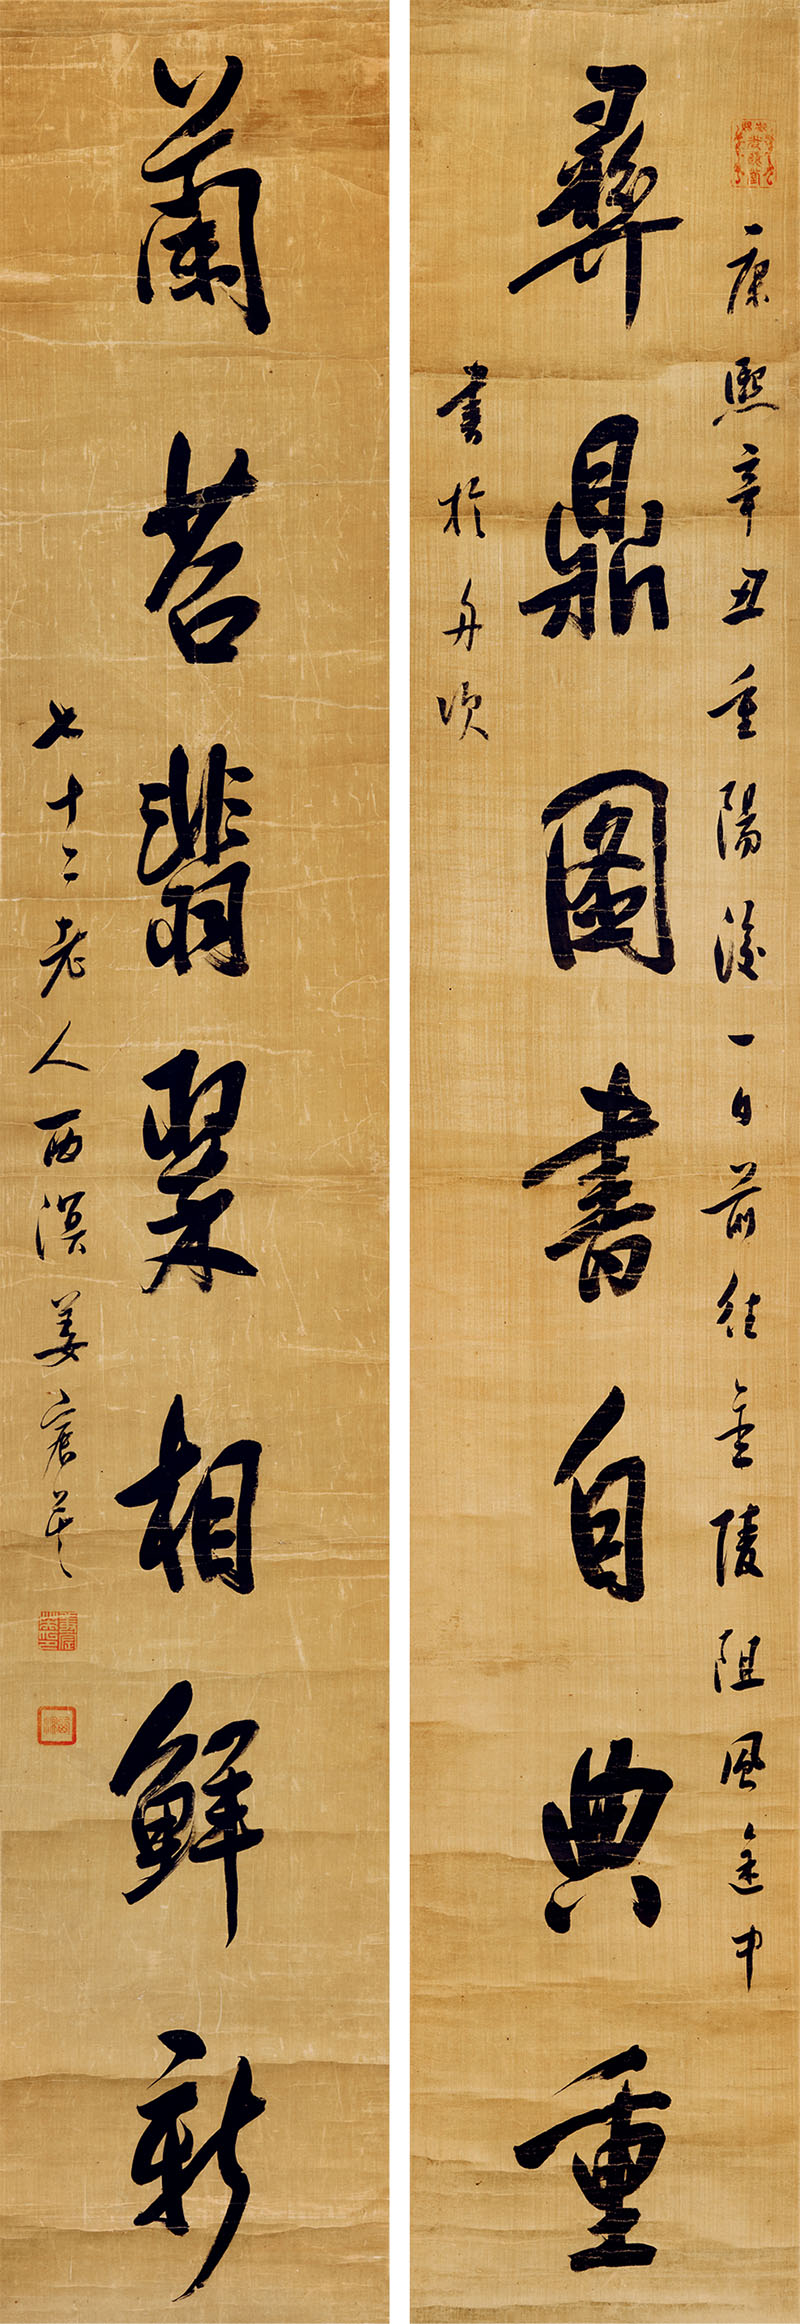 康熙辛丑重陽後一日前往金陵阻風途中
彝鼎圖書自典重
書於舟次
蘭苕翡翠相鮮新
七十二老人西溟姜宸英